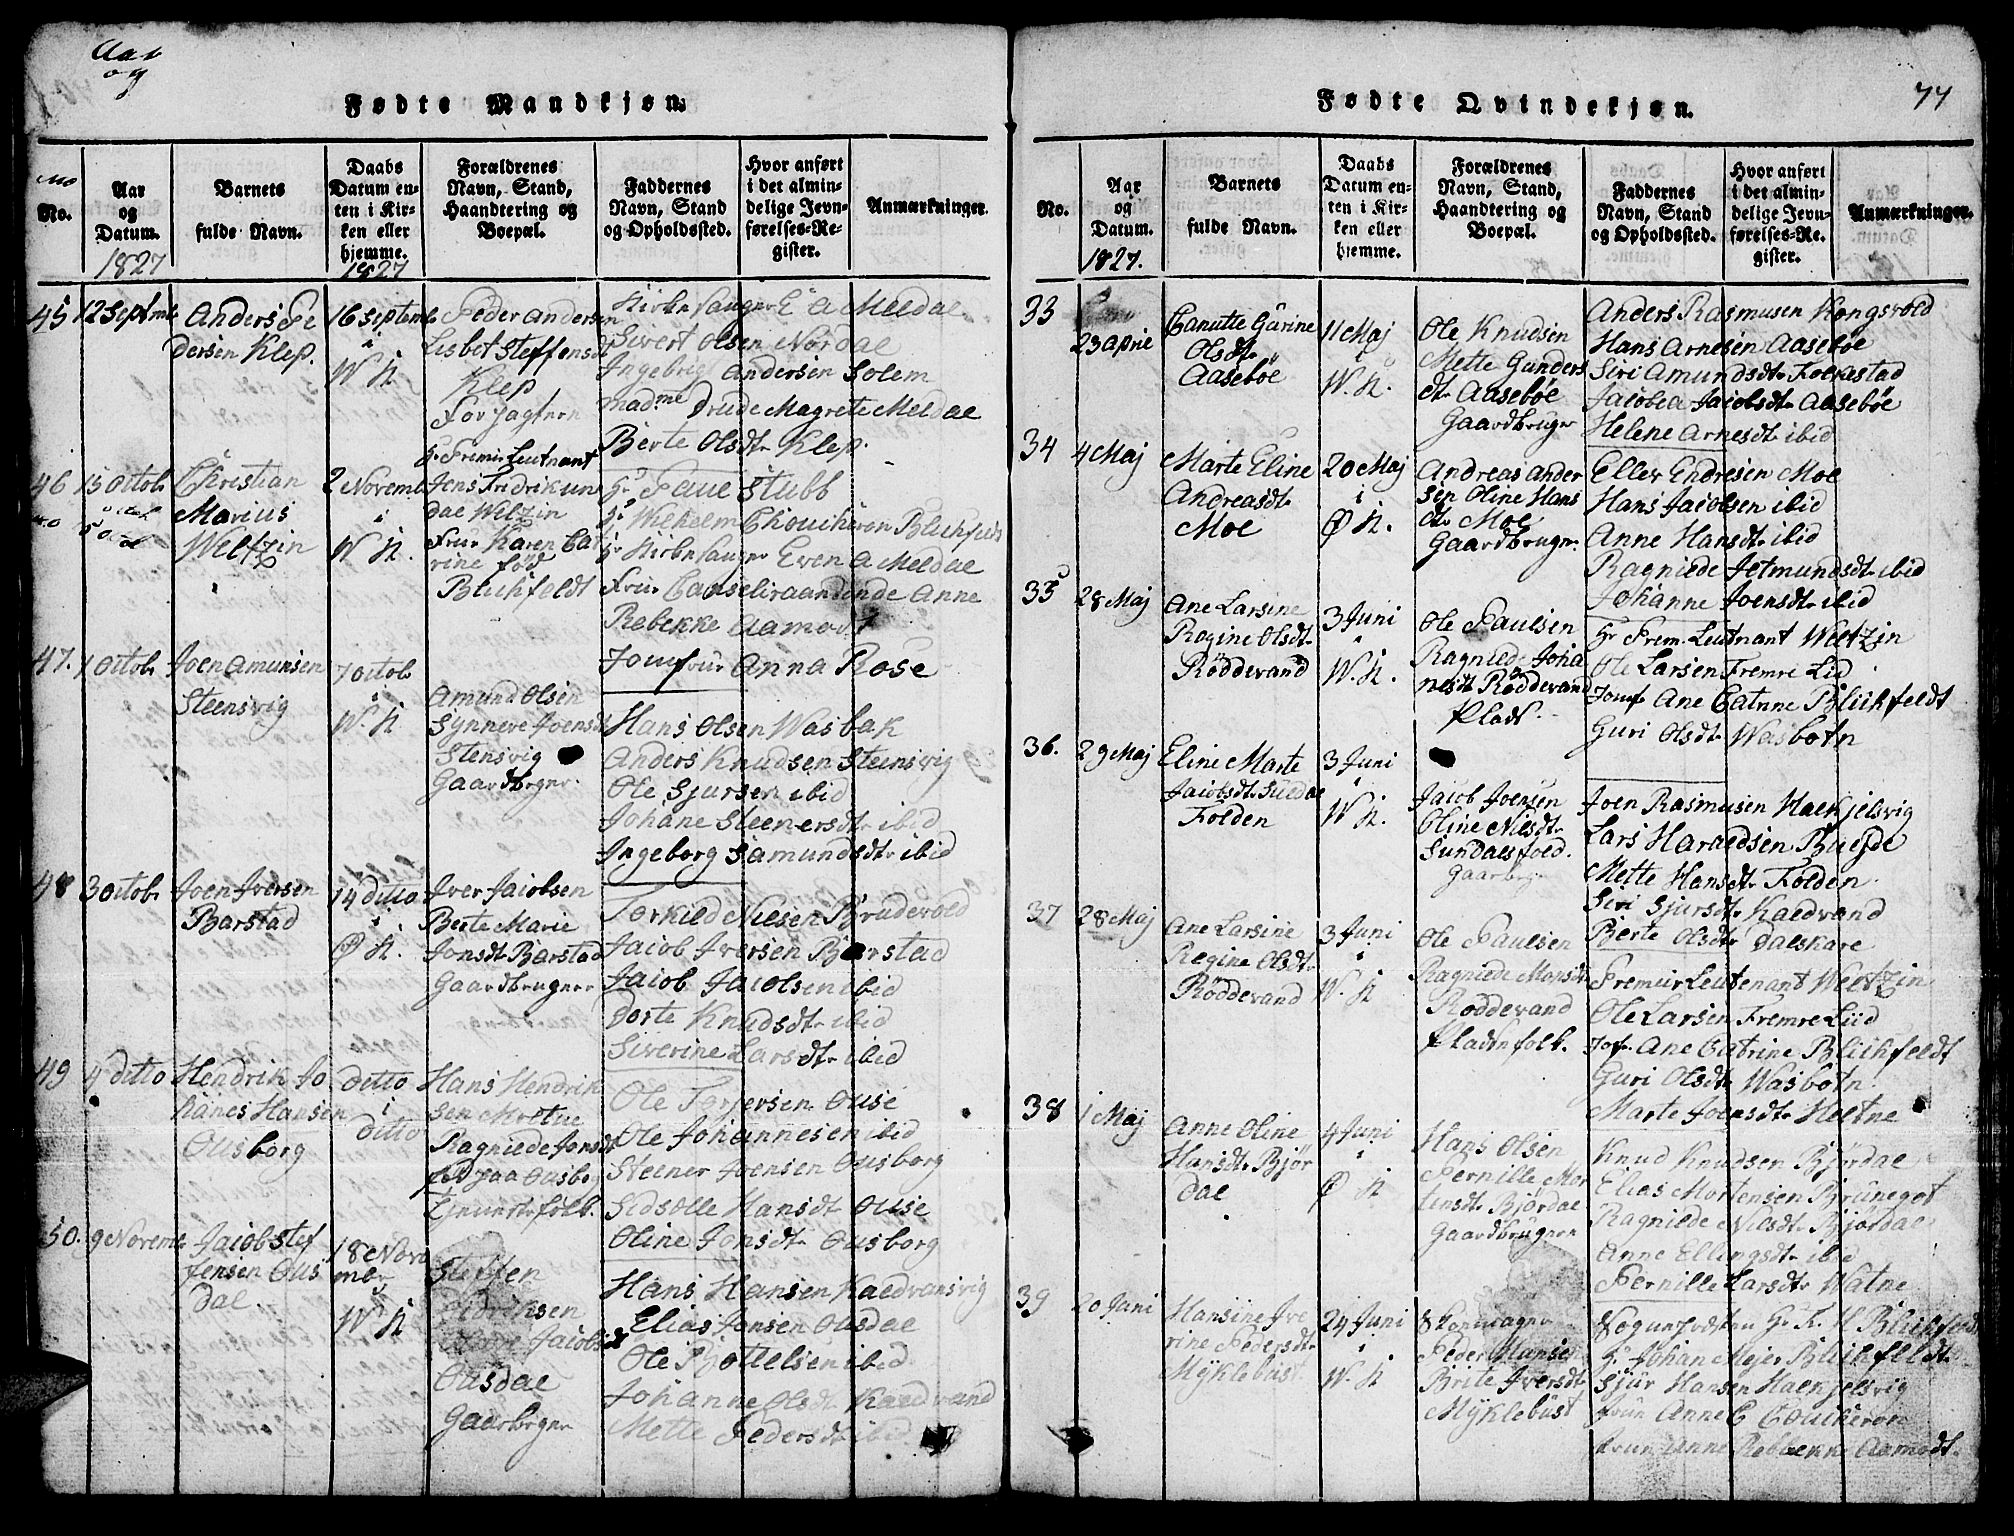 Aar
og
Fødte Mandkjøn.
No.
Aar
og
Datum.
1827
Barnets
fulde Navn.
Daabs
Datum en-
ten i Kir-
ken eller
hjemme.
1827
Forældrenes
Navn, Stand,
Haandtering og
Boepæl.
Faddernes
Navn, Stand
og Opholdssted.
Hvor anført
i det almin-
delige Jevn-
førelses-Re-
gister.
Anmærkninger.
45
12 Septmb
Anders Pe
dersen Klep.
16 Septemb
i
W K
Peder Andersen
Lisbet Steffensdt
Klep
Forpagtern
Kirkesanger E A Meldal
Sivert Olsen Nordal
Ingebrig Andersen Solem
Madme Drude Magrete Meldal
Berte Olsdt Klep.
46
15 Octob
Christian
Marius
Weltzin
2 Novemb
i
W K.
Hr Premir Leutnant
Jens Fridrik un
dal Weltzin
Frue Karen Cat
rine fød
Blichfeldt
Hr Paul Stub
Hr Wilhelm Chouchiron Blichfeldt
Hr Kirkesanger Even A Meldal
Frue Canseliraadinde Anne
Rebekke Aamodt
Jomfrue Anna Rose
47.
1 Octob
Joen Amunsen
Steensvig
7 Octob
i
W K.
Amund Olsen
Synneve Joensdt
Stensvig
Gaardbrgner.
Hans Olsen Wasbak
Anders Knudsen Steensvig
Ole Sjursen ibid
Johane Steenersdt ibid
Ingeborg Samundsdt ibid
48
3 Octob.
Joen Iversen
Barstad
14 Ditto
i
Ø K.
Iver Jacobsen
Berte Marie
Jonsdt Barstad
Gaardbrugner
Torkild Nielsen Brudevold
Jacob Iversen Barstad
Jacob Jacobsen ibid
Dorte Knudsdt ibid
Siverine Larsdt ibid
49
4 ditto
Hendrik Jo
hanes Hansen
Ousborg
Ditto
i
ditto
Hans Hendrik
sen Moltue
Ragnilde Jonsdt
fød paa Ousborg
Tjenestefolk.
Ole Torgersen Ouse
Ole Johannesen ibid
Steener Joensen Ousborg
Sidselle Hansdt Ouse
Oline Jonsdt Ousborg
50.
9 Novemb
Jacob Stef
fensen Ous
dal
18 Nove
mbr
W K
Steffen
Didriksen
Jacobsdt
Ousdal
Gaarbrgner
Hans Hansen Kaldvansvig
Elias Jensen Ousdal
Ole Pottelsen ibid
Johanne Olsdt Kaldvand
Mette Pedersdt ibid
Fødte Qvindekjøn.
77
No.
Aar
og
Datum.
1827.
Barnets
fulde Navn.
Daabs
Datum en-
ten i Kir-
ken eller
hjemme.
Forældrenes
Navn, Stand,
Haandtering og
Boepæl.
Faddernes
Navn, Stand
og Opholdssted.
Hvor anført
i det almin-
delige Jevn-
førelses-Re-
gister.
Anmærkninger.
33
23 April
Canutte Gurine
Olsdt
Aasebøe
11 Maj
i
W. K.
Ole Knudsen
Mette Gunders
dt Aasebøe
Gaardbrugr
Anders Rasmusen Kongsvold
Hans Arnesen Aasebøe
Siri Amundsdt Folkestad
Jacobea Jacobsdt Aasebøe
Helene Arnesdt ibid
34
4 Maj
Marte Eline
Andreasdt
Moe
20 Maj
i
Ø K.
Andreas Ander
sen Oline Hans
dt Moe
Gaardbrugnr.
Eller Endresen Moe
Hans Jacobsen ibid
Anne Hansdt ibid
Ragnilde Jetmundsdt ibid
Johanne Joensdt ibid
35
28 Maj
Ane Larsine
Regine Olsdt
Røddevand
3 Juni
i
W. K.
Ole Paulsen
Ragnilde Joha
nesdt Røddevand
Plads.
Hr Prem. Leutnant Weltzin
Ole Larsen Fremre Lid
Jomf Ane Catrine Blichfeldt
Guri Olsdt Wasbotn
36.
29 Maj
Eline Marte
Jacobsdt Suldal
Folden
3 Juni
i
W K.
Jacob Joensen
Oline Nielsdt
Sundalsfold.
Gaarbrgr
Joen Rasmusen Halkjelsvig
Lars Haraldsen Bugde
Mette Hansdt Folden
Siri Sjursdt Kaldvand
Berte Olsdt Dalskare
37
28 Maj
Ane Larsine
Regine Olsdt
Røddevand
3 Juni
i
W. K
Ole Paulsen
Ragnilde Monsdt
Roddevand
Pladsnfolk.
Premeir Leutenant Weltzin
Ole Larsen Fremre Liid
Jof. Ane Catrine Blichfeldt
Guri Olsdt Wasbotn
Marte Joensdt Heltne
38
1 Maj
Anne Oline
Hansdt Bjør
dal
4 Juni
i
Ø K
Hans Olsen
Pernille Mor
tensdt Bjørdal
Gaardbrugner
Knud Knudsen Bjørdal
Elias Mortensen Brunegot
Ragnilde Nielsdt Bjørdal
Anne Ellingsdt ibid
Pernille Larsdt Watne
39
20 Juni
Hansine Ive
rine Pedersdt
Myklebust
24 Juni
i
W. K
Skonmagr
Peder Hansen
Brite Iversdt
Myklebust
Sogneprdsten Hr K. W Blichfeldt
Hr Johan Mejer Blichfeldt
Sjur Hansen Halkjelsvig
Frue Anne C Couchiron
Frue Anne Rebbekke Aamodt.